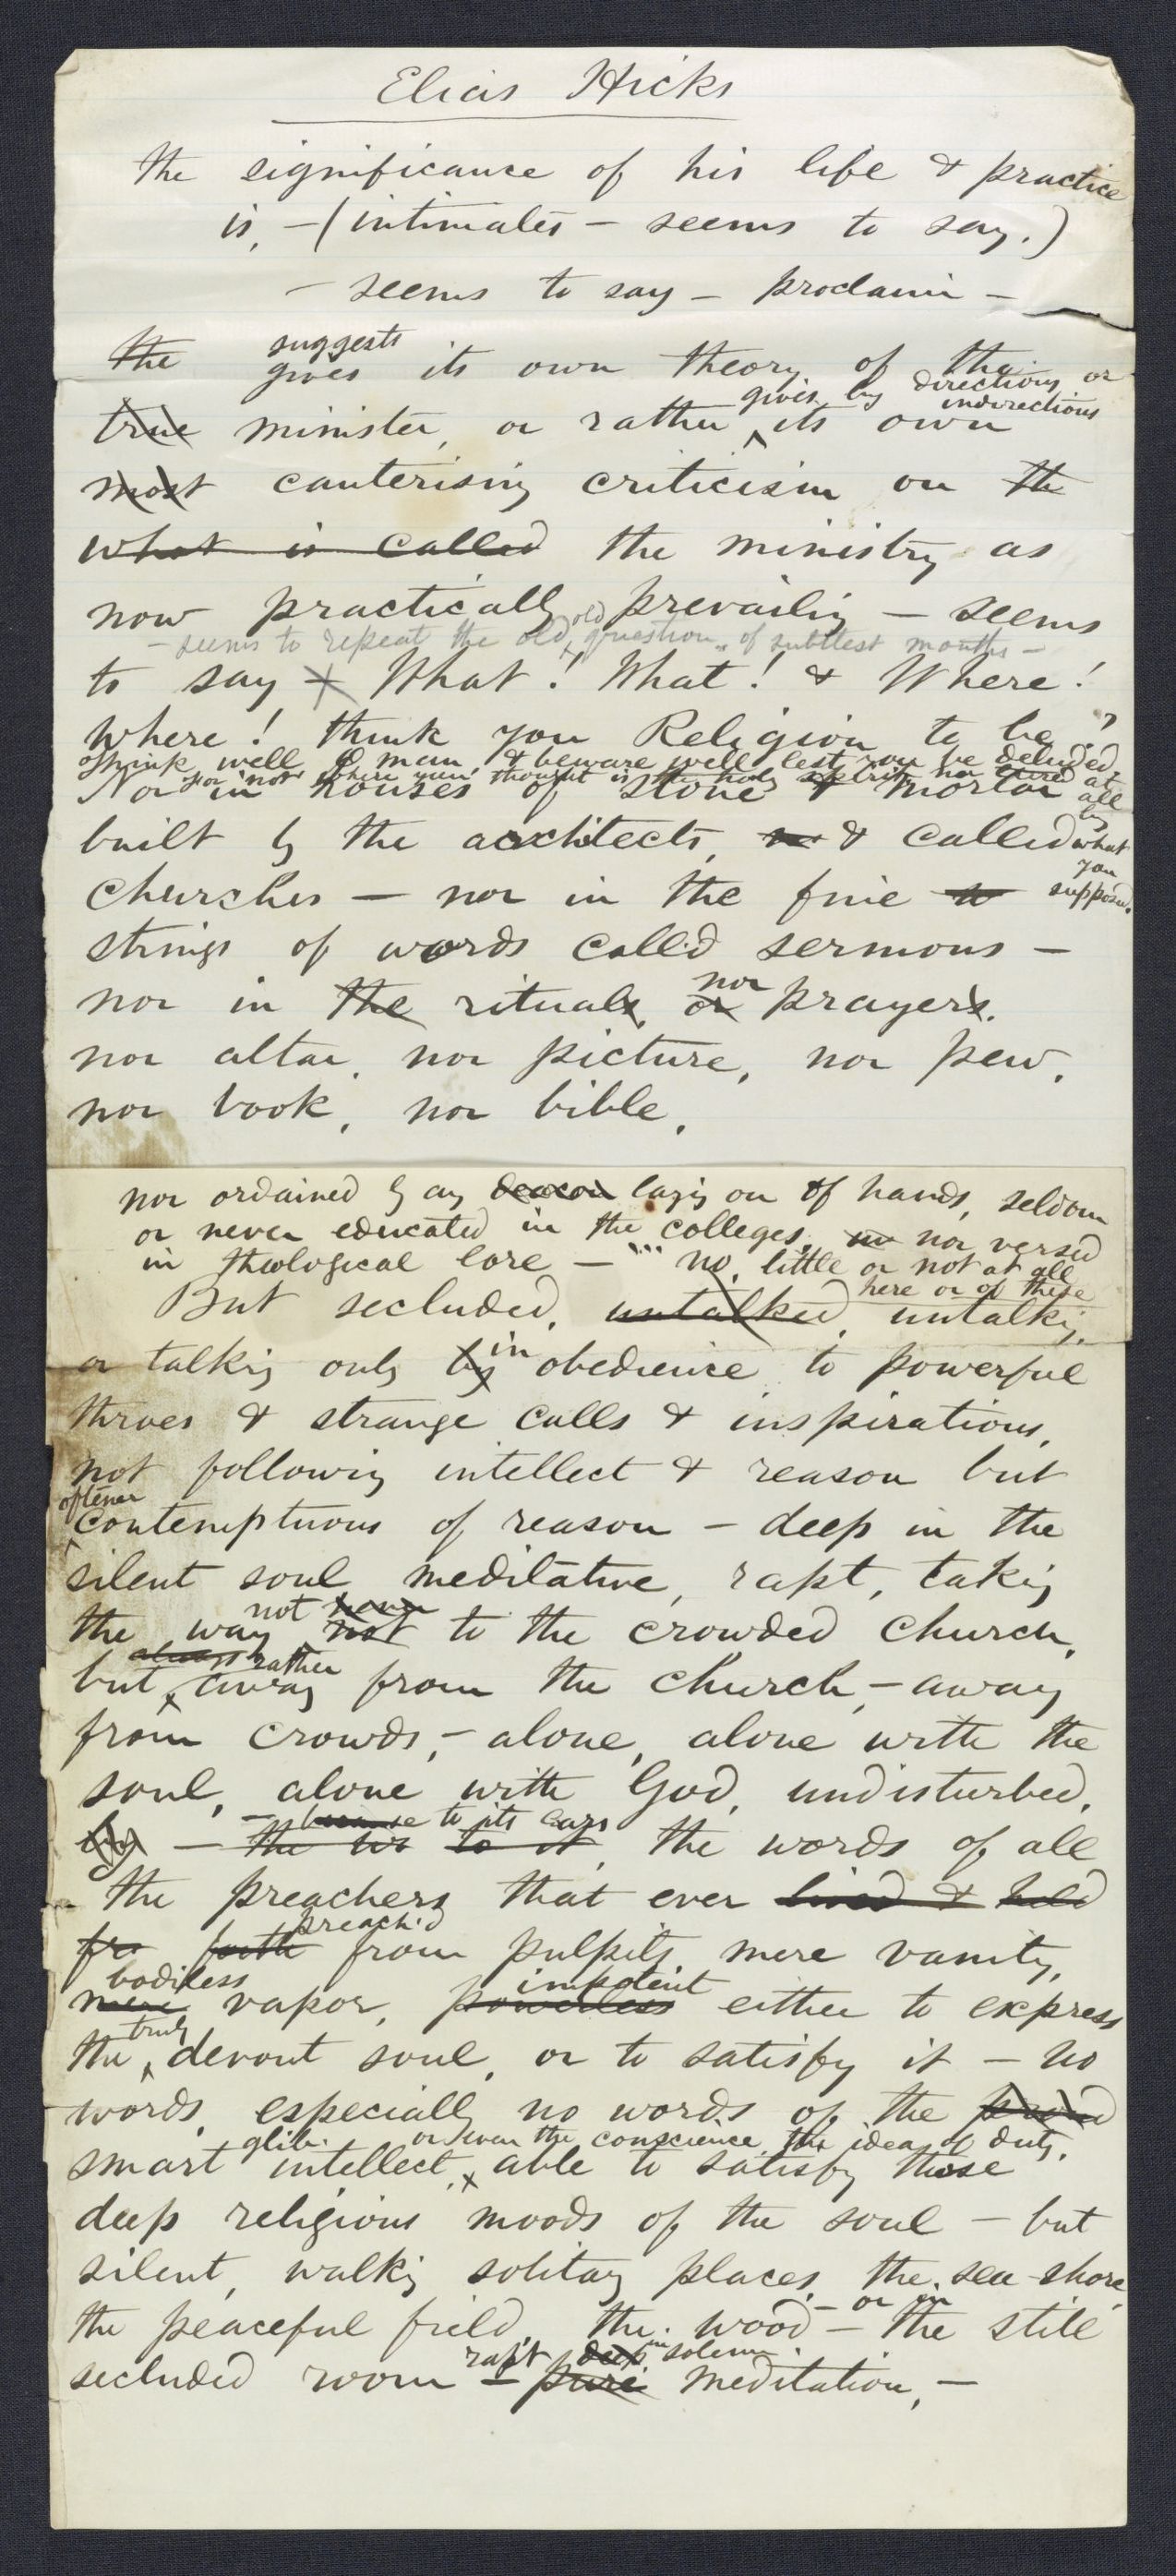 Elias Hicks
the significance of his life & practice
is, – (intimates – seems to say.)
– seems to say – proclaim –
suggests
the gives its own theory of the
gives by directions or
indirections
true minister, or rather ^ its own
most cauterising criticism on the
what is called the ministry as
now practically prevailing – seems
– seems to repeat the old, old question, of subtlest mouths –
to say – What! What! & Where!
where! think you Religion to be?
Think well O man, & beware well lest you be deluded
for not where your thought is the holy nor at
all
by
what
you
supposed.
Nor in houses of stone & mortar
built by the architects, & called
churches – nor in the fine
strings of words call'd sermons –
nor
nor in the rituals, or prayers.
nor altar, nor picture, nor pew,
nor book, nor bible,
nor ordained by any deacon laying on of hands, seldom
or never educated in the colleges, nor versed
in theological lore – no, little or not at all
here or of these
But secluded, untalked, untalking,
in
or talking only by obedience to powerful
throes & strange calls & inspirations,
not following intellect & reason but
oftener
contemptuous of reason – deep in the
silent soul, meditative, rapt, taking
not never
the way not to the crowded church,
always rather
but ^ away from the church, – away
from crowds, – alone, alone with the
soul, alone with God, undisturbed,
– because to its ears
by – the to it, the words of all
the preachers that ever lived & held
preach'd
fro forth from pulpits mere vanity,
bodiless impotent
mere vapor, powerless either to express
truly
the ^ devout soul, or to satisfy it – no
words, especially no words of the proud
glib or even the conscience, the idea of duty,
smart intellect, able to satisfy those
deep religious moods of the soul – but
silent, walking solitary places, the sea-shore,
– or in
the peaceful field, the wood – the still
rapt deep in solemn
secluded room – pure meditation, –